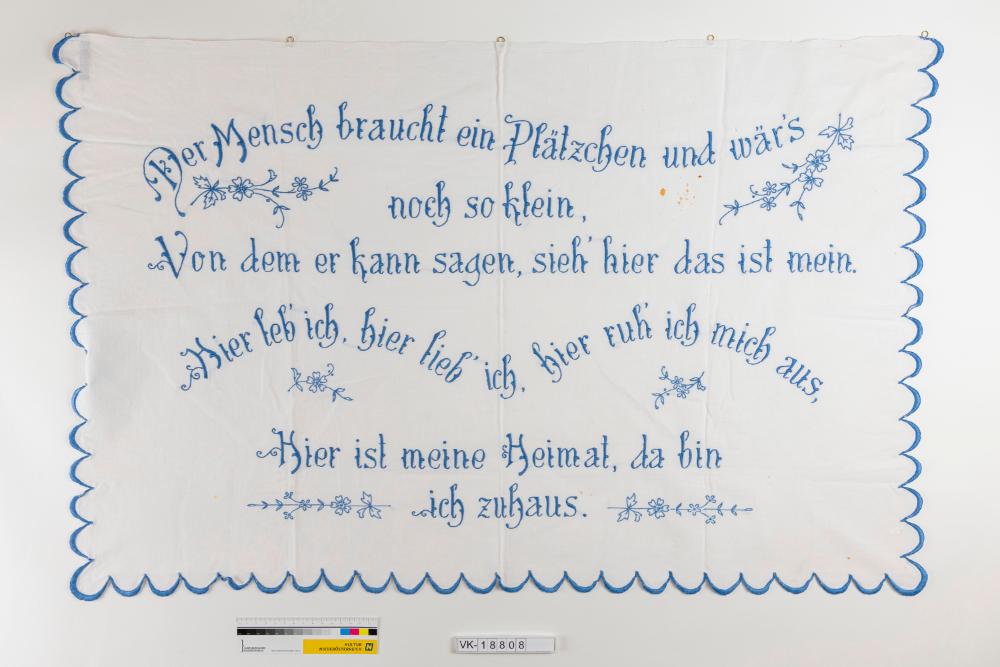 Der Mensch braucht ein Plätzchen und wär's
noch so klein,
Von dem er kann sagen, sieh' hier das ist mein.
Hier leb' ich, hier lieb' ich, hier ruh' ich mich aus,
Hier ist meine Heimat, da bin
ich zuhaus.
VK-18808
KULTUR
NIEDERÖSTERREICH